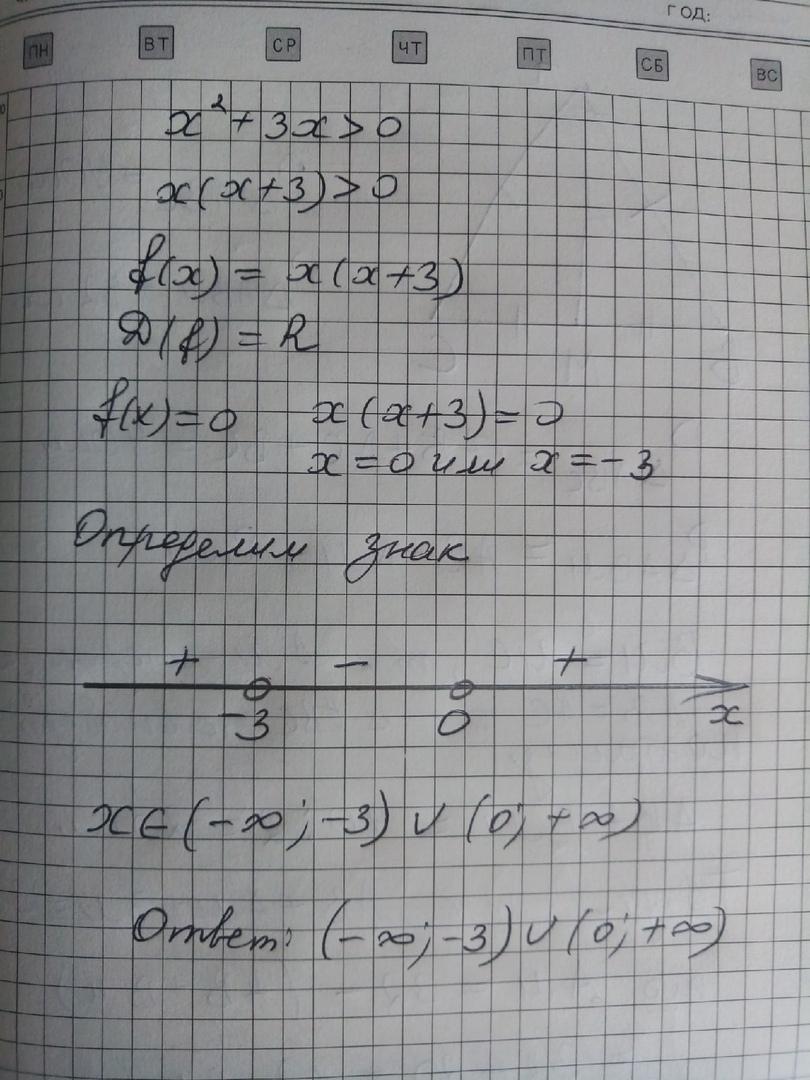 ГОД:
ПН ВТ СР ЧТ ПТ СБ ВС
x² + 3x > 0
x(x+3) > 0
f(x) = x(x+3)
D(f) = R
f(x) = 0 x(x+3) = 0
x = 0 или x = -3
Определим знак
+ - +
-3 0 x
x ∈ (-∞; -3) ∪ (0; +∞)
Ответ: (-∞; -3) ∪ (0; +∞)